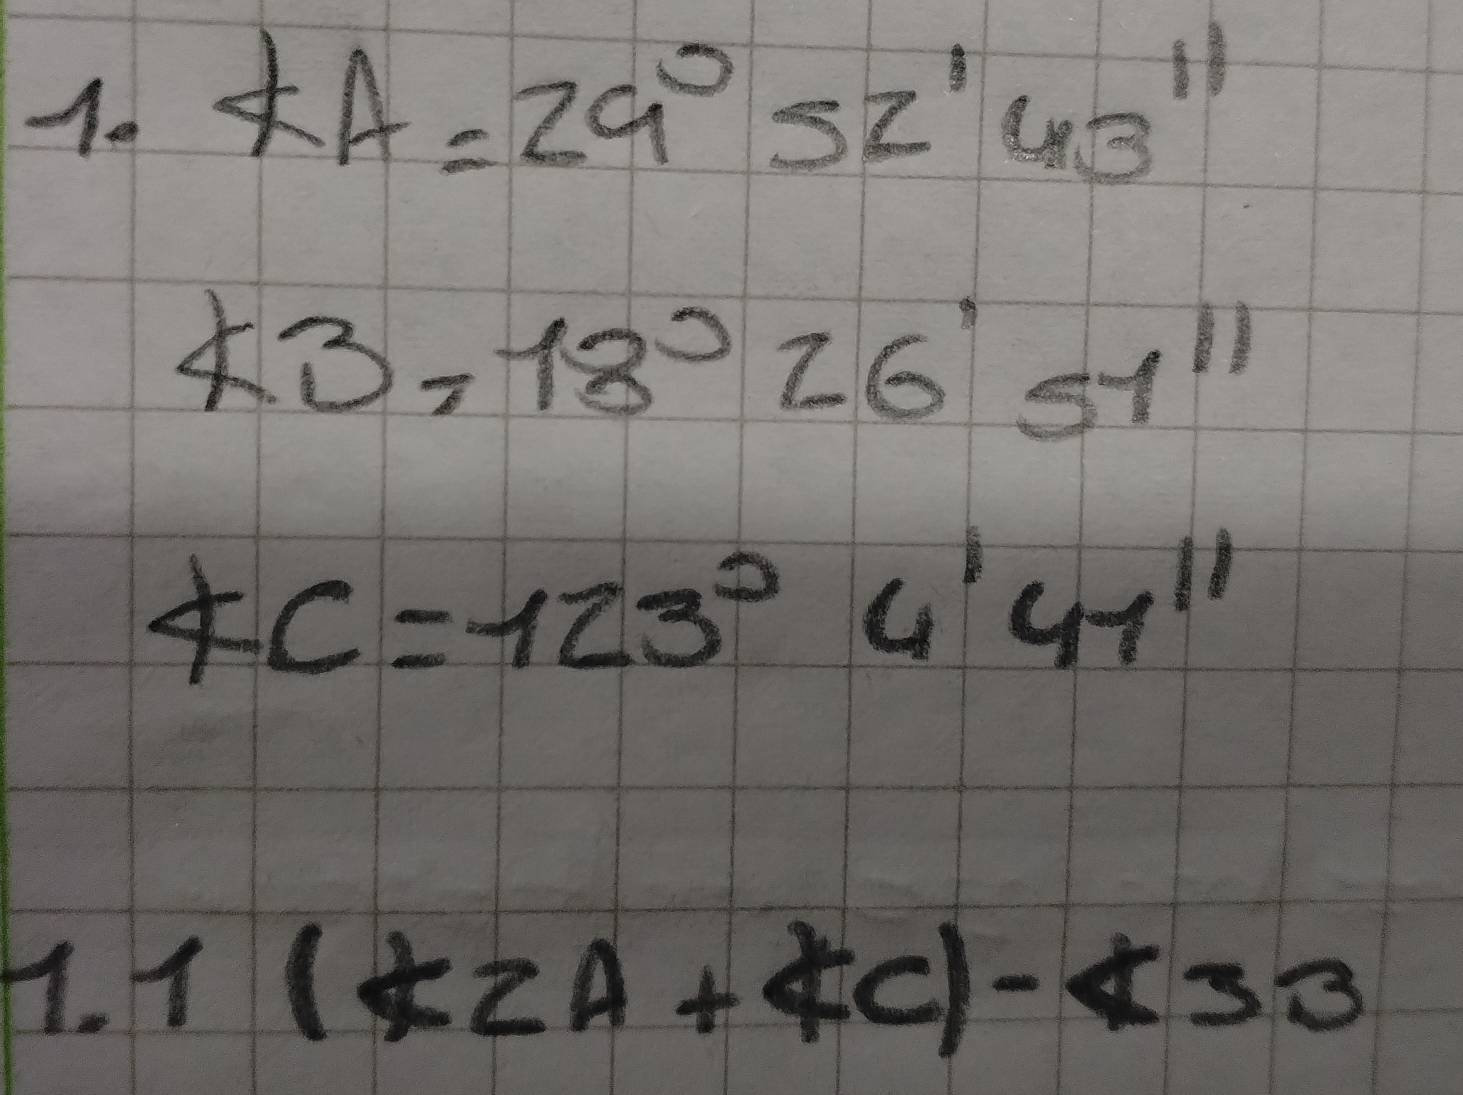 1. ∢A = 29° 52' 43"
∢B = 18° 26' 51"
∢C = 123° 4' 41"
1.1 (∢2A + ∢C) - ∢3B